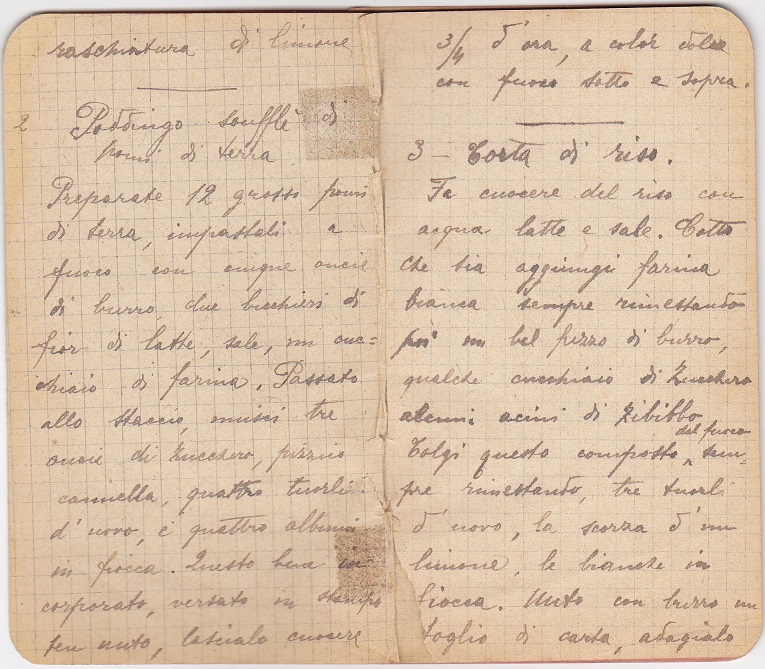 raschiatura di limone
2 Poddingo soufflè di
pomi di terra
Preparate 12 grossi pomi
di terra, impastali a
fuoco con cinque oncie
di burro, due bicchieri di
fior di latte, sale, un cuc=
chiaio di farina. Passato
allo staccio, unisci tre
oncie di zucchero, pizzico
cannella, quattro tuorli
d'uovo, e quattro albumi
in fiocca. Questo bene in
corporato, versato in stampo
ben unto, lascialo cuocere
3/4 d'ora, a color dolce
con fuoco sotto e sopra.
3 - Torta di riso.
Fa cuocere del riso con
acqua latte e sale. Cotto
che sia aggiungi farina
bianca sempre rimestando
poi un bel pezzo di burro,
qualche cucchiaio di zucchero
alcuni acini di zibibbo
Tolgi questo composto dal fuoco, sem-
pre rimestando, tre tuorli
d'uovo, la scorza d'un
limone, le bianche in
fiocca. Unto con burro un
foglio di carta, adagialo